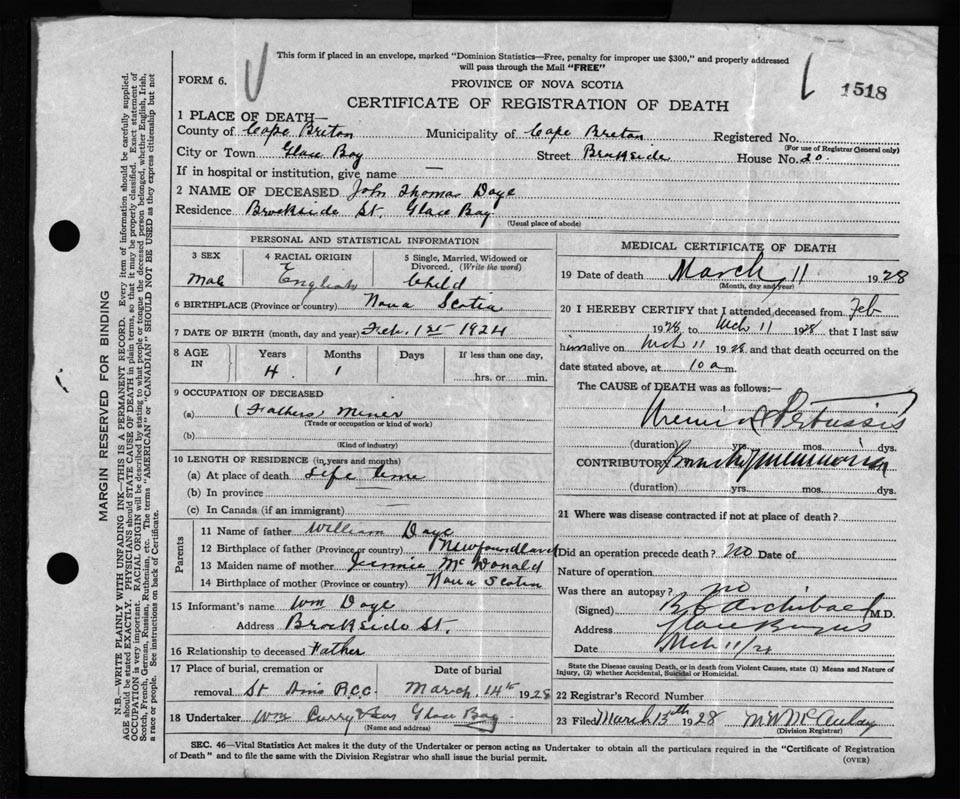 This form if placed in an envelope, marked "Dominion Statistics—Free, penalty for improper use $300," and properly addressed
will pass through the Mail "FREE"
FORM 6.
PROVINCE OF NOVA SCOTIA
1518
CERTIFICATE OF REGISTRATION OF DEATH
1 PLACE OF DEATH—
County of Cape Breton Municipality of Cape Breton Registered No.
(For use of Registrar General only)
City or Town Glace Bay Street Brookside House No. 20.
If in hospital or institution, give name —
2 NAME OF DECEASED John Thomas Doye
Residence Brookside St. Glace Bay.
(Usual place of abode)
PERSONAL AND STATISTICAL INFORMATION
3 SEX 4 RACIAL ORIGIN 5 Single, Married, Widowed or
Divorced. (Write the word)
Male English Child
6 BIRTHPLACE (Province or country) Nova Scotia
7 DATE OF BIRTH (month, day and year) Feb. 1st 1924
8 AGE IN Years Months Days If less than one day,
4 1 hrs. or min.
9 OCCUPATION OF DECEASED
(a) (Fathers) Miner
(Trade or occupation or kind of work)
(b)
(Kind of industry)
10 LENGTH OF RESIDENCE (in years and months)
(a) At place of death Life time
(b) In province
(c) In Canada (if an immigrant)
Parents
11 Name of father William Doye
12 Birthplace of father (Province or country) Newfoundland
13 Maiden name of mother Jennie McDonald
14 Birthplace of mother (Province or country) Nova Scotia
15 Informant's name Wm Doye
Address Brookside St.
16 Relationship to deceased Father
17 Place of burial, cremation or Date of burial
removal St Anns R.C.C. March 14th 1928
18 Undertaker Wm Curry & Son Glace Bay
(Name and address)
MEDICAL CERTIFICATE OF DEATH
19 Date of death March 11 1928
(Month, day and year)
20 I HEREBY CERTIFY that I attended deceased from Feb
1928 to Mch 11 1928 that I last saw
him alive on Mch 11 1928 and that death occurred on the
date stated above, at 10 am
The CAUSE of DEATH was as follows:—
Uremia & Pertussis
(duration) yrs. mos. dys.
CONTRIBUTORY Bronchopneumonia
(duration) yrs. mos. dys.
21 Where was disease contracted if not at place of death?
Did an operation precede death? no Date of
Nature of operation
Was there an autopsy? no
(Signed) Archibald M.D.
Address Glace Bay NS
Date Mch 11/28
State the Disease causing Death, or in death from Violent Causes, state (1) Means and Nature of
Injury, (2) whether Accidental, Suicidal or Homicidal.
22 Registrar's Record Number
23 Filed March 15th 1928 McAulay
(Division Registrar)
SEC. 46—Vital Statistics Act makes it the duty of the Undertaker or person acting as Undertaker to obtain all the particulars required in the "Certificate of Registration
of Death" and to file the same with the Division Registrar who shall issue the burial permit.
(OVER)
MARGIN RESERVED FOR BINDING
N.B.—WRITE PLAINLY WITH UNFADING INK—THIS IS A PERMANENT RECORD. Every item of information should be carefully supplied.
AGE should be stated EXACTLY. PHYSICIANS should STATE CAUSE OF DEATH in plain terms, so that it may be properly classified. Exact statement of
OCCUPATION is very important. RACIAL ORIGIN will be described by stating to what people or tongue the deceased person belonged, whether English, Irish,
Scotch, French, German, Russian, Ruthenian, etc. The terms "AMERICAN" or "CANADIAN" SHOULD NOT BE USED as they express citizenship but not
a race or people. See instructions on back of Certificate.